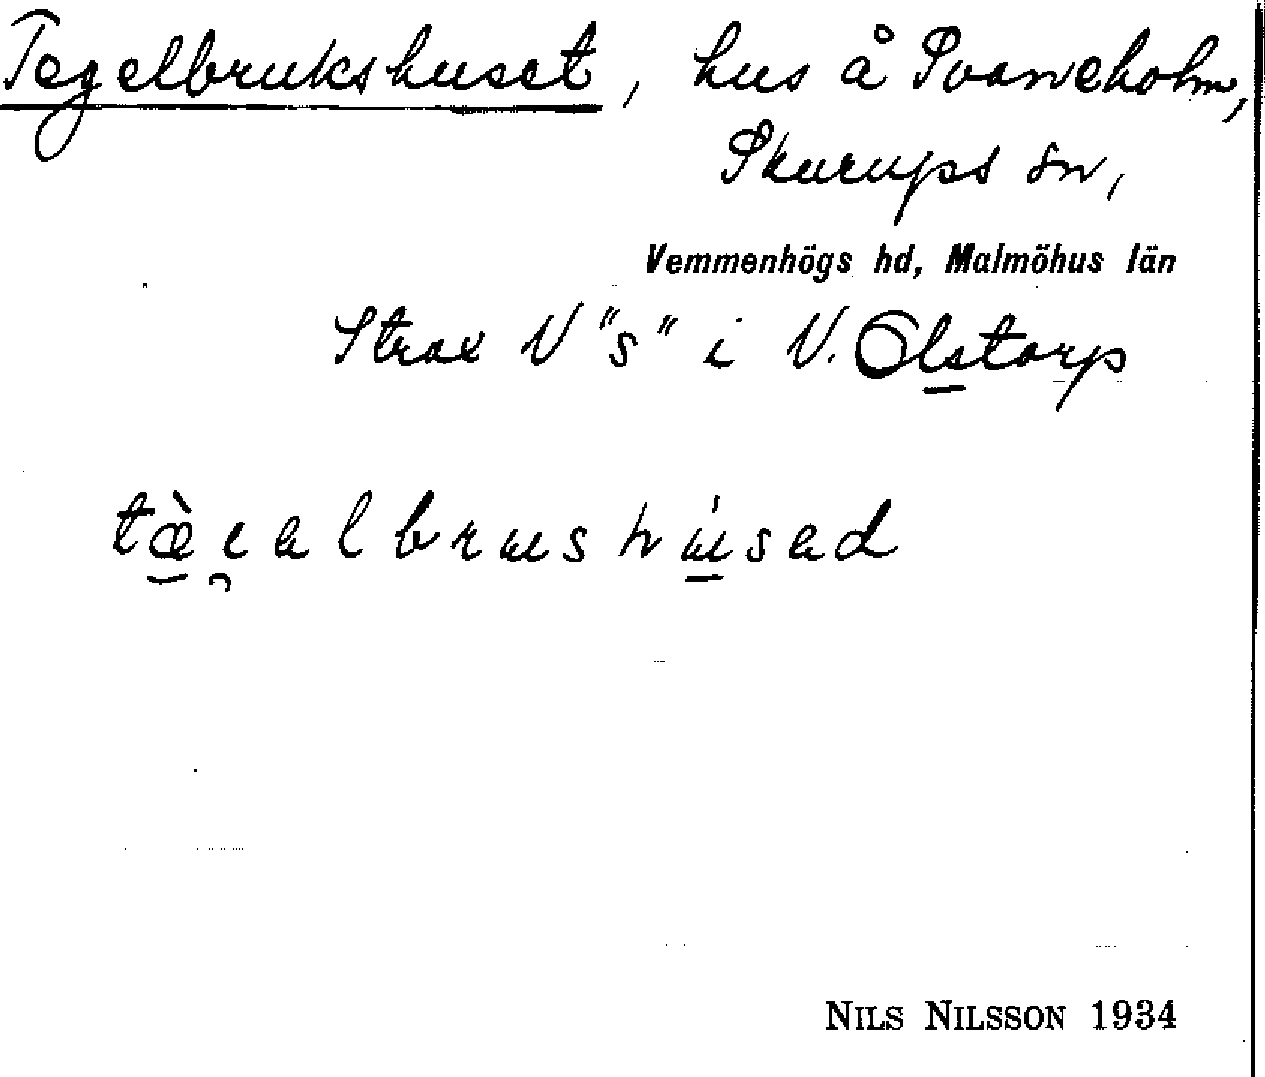 Tegelbrukshuset, hus å Svaneholm,
Skurups sn,
Vemmenhögs hd, Malmöhus län
Strax V "s" i V. Olstorp
tæ̀ealbrushúsad
NILS NILSSON 1934